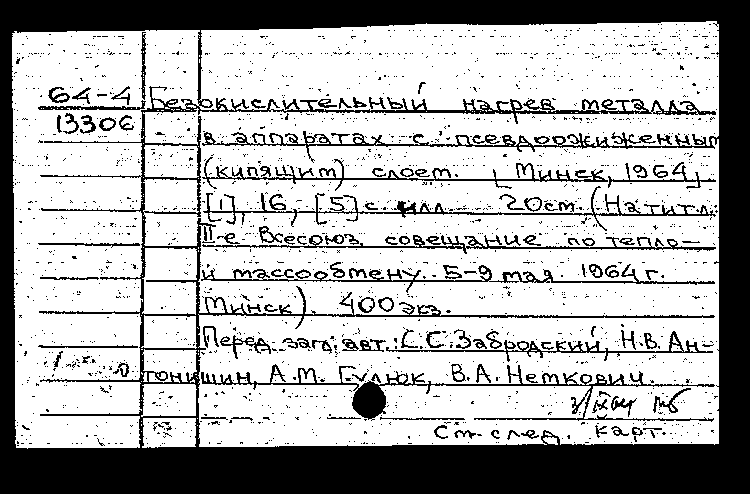 64-4 Безокислительный нагрев металла
13306 в аппаратах с псевдоожиженным
(кипящим) слоем. [Минск, 1964]
[1], 16, [5] с. илл. 20 см. (На тит. л.
II-е Всесоюз. совещание по тепло-
и массообмену. 5-9 мая 1964 г.
Минск). 400 экз.
Перед загл. авт.: С.С. Забродский, Н.В. Ан-
тонишин, А.М. Гулюк, В.А. Неткович.
См. след. карт.